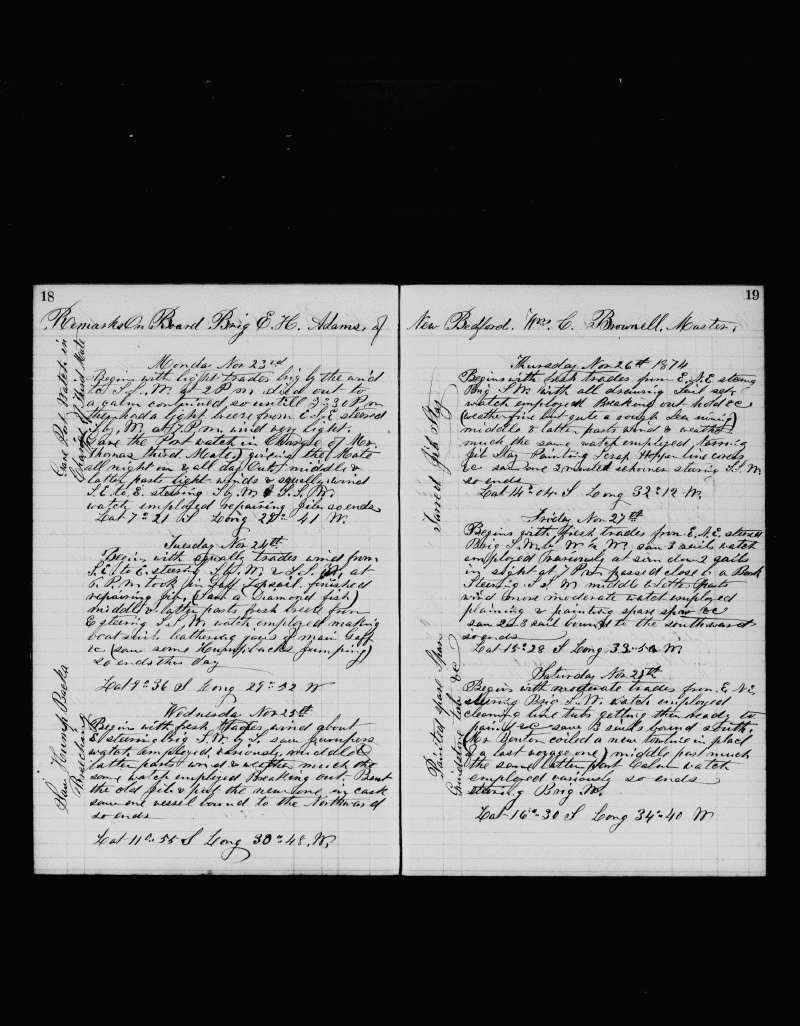 18
Remarks On Board Brig E. H. Adams, of
Gave Port Watch in
Charge of third Mate
Monday Nov 23rd
Begins with light trades brig by the wind
to S. W. at 2 P m died out to
a calm continued so untill 3:30 P m
then had a light breeze from E. S. E steered
S by W. at 7 P. m. wind very light.
Gave the Port watch in Charge of Mr.
Thomas third Mate, giveing the Mate
all night in & all day Out) middle &
latter parts light winds & squally wind
S. E. to E. steering S by W & S. S. W.
watch employed repairing jib so ends
Lat 7° 21 S Long 29° 41 W.
Tuesday Nov 24th
Begins with squally trades wind from
S. E. to E. steering S. by W. & S. S. W. at
6 P. m. took in Gaff Topsail. finished
repairing jib, (Saw a Diamond fish)
middle & latter parts fresh breeze from
E steering S. S. W watch employed making
boat sails leathering jaws of main Gaff
&c (saw some Humpbacks jumping)
so ends this day
Lat 9° 36 S Long 29° 52 W
Saw Hump Backs
Breaching
Wednesday Nov 25th
Begins with fresh trades wind about
E steering Brig S. W. by S. saw jumpers
watch employed variously, middle &
latter parts wind & weather much the
same watch employed Breaking out. Bent
the old jib & put the new one in cask
saw one vessel bound to the Northward
so ends
Lat 11° 55 S Long 30° 48, W,
19
New Bedford. Wm C. Brownell, Master,
Tarred Jib Stay
Thursday, Nov 26th 1874
Begins with fresh trades from E. N. E steering
Brig S. W. with all drawing Sail set,
watch employed Breaking out hold &c
(weather fine but quite a rough Sea runing)
middle & latter parts wind & weather
much the same watch employed tarring
jib Stay Painting Scrap Hopper line covers
&c saw one 3 masted schooner steering S. S. W.
so ends
Lat 14° 04 S Long 32° 12 W.
Friday Nov 27th
Begins with fresh trades from E. N. E. steered
Brig S. W. & W by W. saw 3 sails watch
employed variously at sun down 2 sails
in sight at 7 P m passed close to a Bark
Steering S. S. W middle & latter parts
wind more moderate watch employed
plaining & painting spare spar &c
saw 2 or 3 sail bound to the southward
so ends
Lat 15° 28 S Long 33° 50 W.
Painted spare Spar
Grindstone tub &c
Saturday Nov 28th
Begins with moderate trades from E. N. E.
steering Brig S. W. watch employed
cleaning line tubs getting them ready to
paint &c saw 3 sails bound south.
(Mr Benton coiled a new towline in place
of a last voyage one) middle part much
the same latter part Calm watch
employed variously so ends
steering Brig W.
Lat 16° 30 S Long 34° 40 W